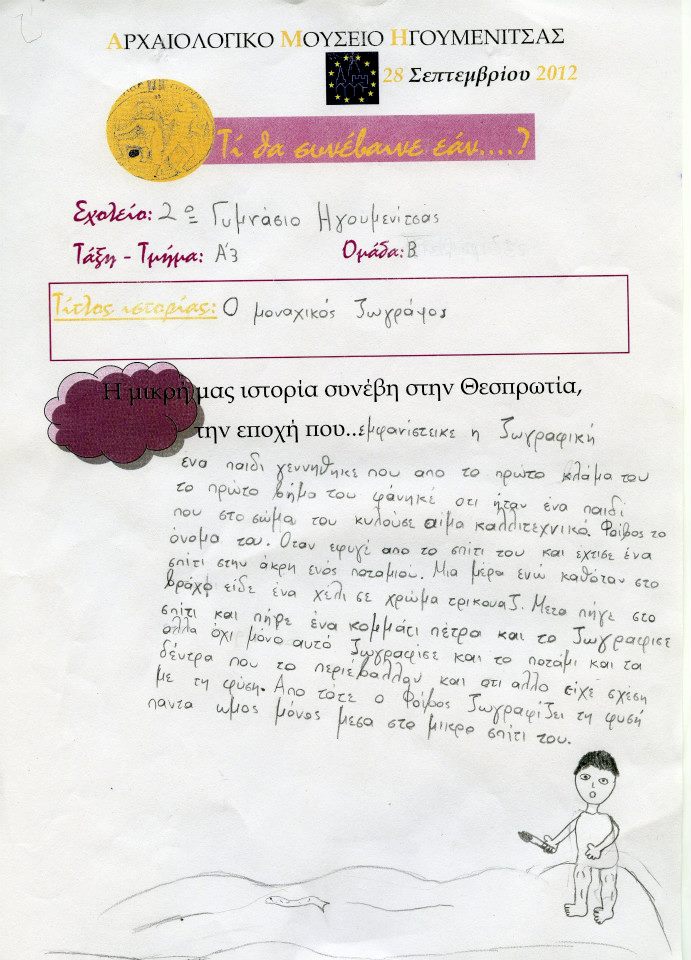 ΑΡΧΑΙΟΛΟΓΙΚΟ ΜΟΥΣΕΙΟ ΗΓΟΥΜΕΝΙΤΣΑΣ
28 Σεπτεμβρίου 2012
Τί θα συνέβαινε εάν....?
Σχολείο: 2ο Γυμνάσιο Ηγουμενίτσας
Τάξη - Τμήμα: Α'3 Ομάδα: Β
Τίτλος ιστορίας: Ο μοναχικός ζωγράφος
Η μικρή μας ιστορία συνέβη στην Θεσπρωτία,
την εποχή που..εμφανίστεικε η ζωγραφική
ενα παιδι γεννηθηκε που απο το πρώτο κλάμα του
το πρώτο βήμα του φάνηκε οτι ήταν ένα παιδί
που στο σώμα του κυλούσε αίμα καλλιτεχνικό. Φοίβος το
όνομα του. Οταν εφυγε απο το σπίτι του και εχτισε ένα
σπίτι στην άκρη ενός ποταμιού. Μια μέρα ενώ καθόταν στο
βράχο είδε ένα χέλι σε χρώμα τρικουαζ. Μετα πήγε στο
σπίτι και πήρε ένα κομμάτι πέτρα και το ζωγραφισε
αλλα όχι μόνο αυτό ζωγραφισε και το ποτάμι και τα
δέντρα που το περιέβαλλαν και οτι αλλο είχε σχέση
με τη φύση. Απο τότε ο Φοίβος ζωγραφίζει τη φυσή
παντα ωμος μόνος μεσα στο μικρο σπίτι του.